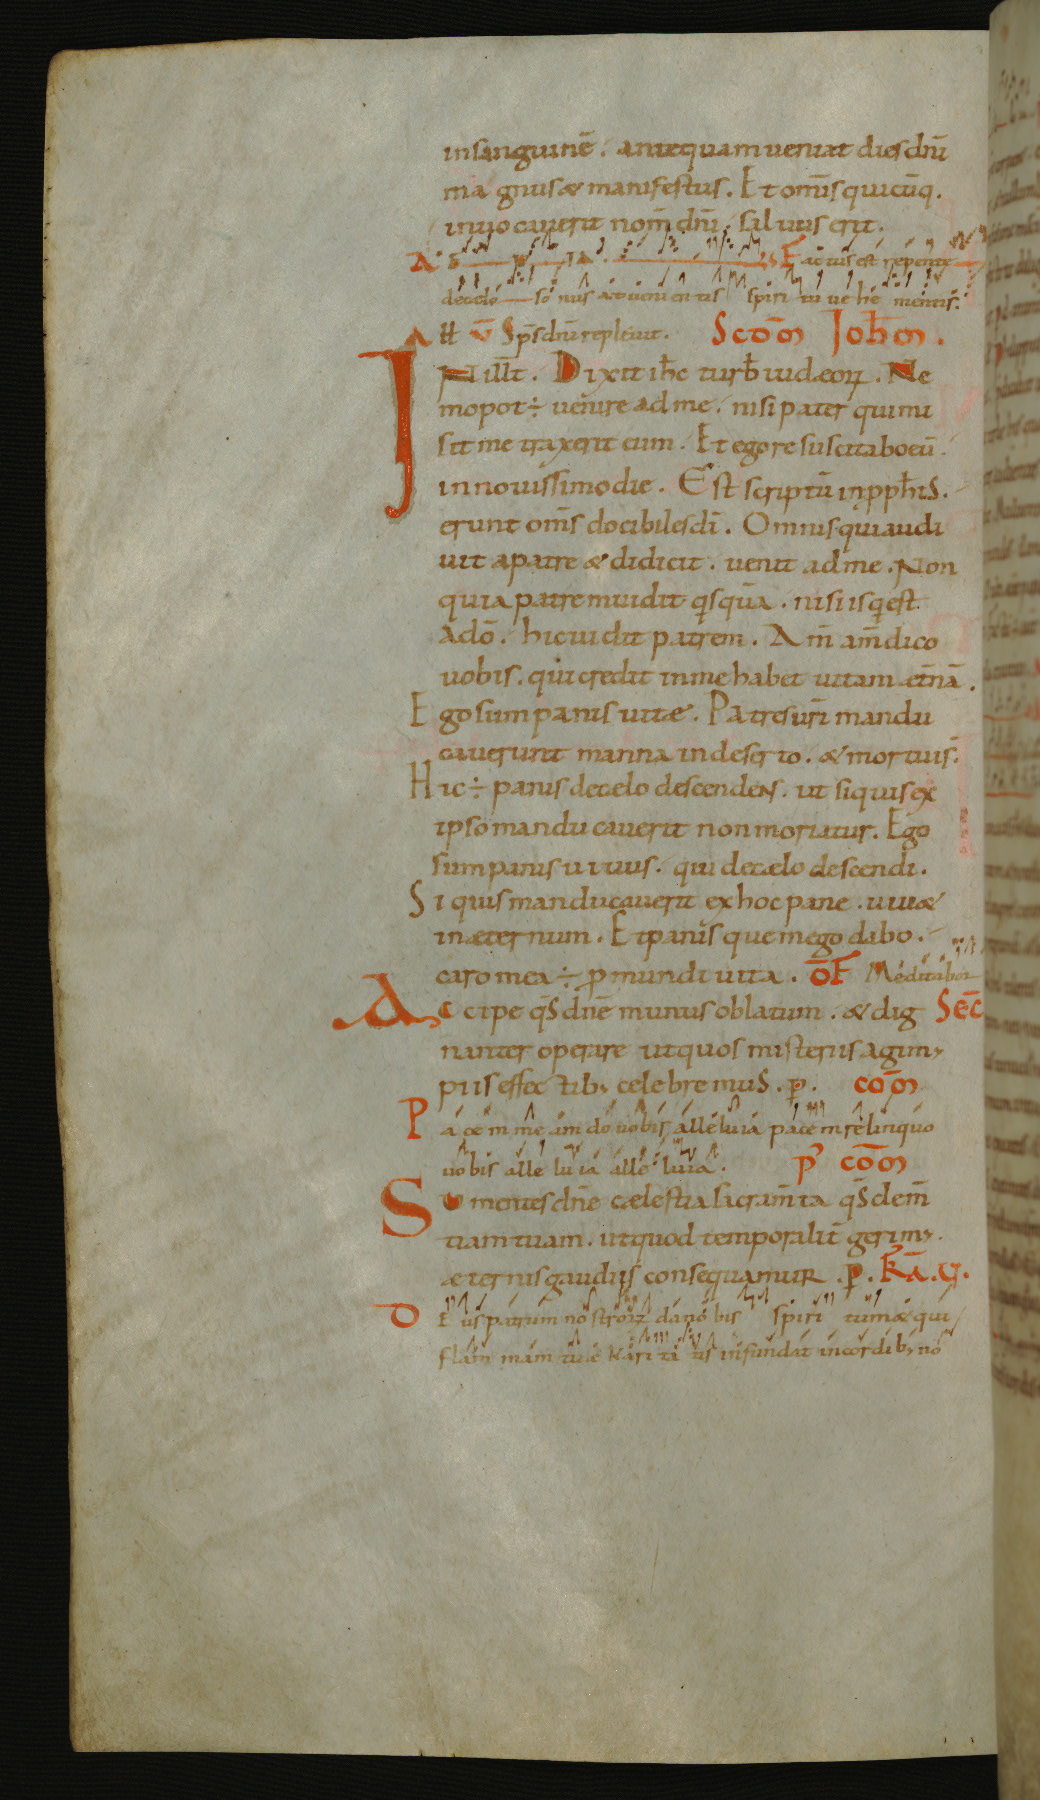 in sanguinē. antequam veniat dies dn̄i
magnus & manifestus. Et om̄is quicūq.
invocaverit nom̄ dn̄i. salvus erit.
A E V IA. Factus est repente
de celo sonus advenientis spiritu vehementis.
All V̄ Sp̄s dn̄i replevit. Scd̄m Joh̄m.
IN illt̄. Dixit ih̄c turb̄ iudæorꝝ. Ne
mo pot÷ venire ad me. nisi pater qui mi
sit me traxerit eum. Et ego resuscitabo eū.
in novissimo die. Est scriptū in pph̄is.
erunt om̄s docibiles dī. Omnis qui audi
vit a patre & didicit. venit ad me. Non
quia patrem vidit qisquā. nisi is qi est
a dō. hic vidit patrem. Am̄ am̄ dico
vobis. qui credit in me habet vitam æt̄nā.
Ego sum panis vitæ. Patres vr̄i mandu
caverunt manna in deserto. & mortui s̄.
Hic ÷ panis de celo descendens. ut si quis ex
ipso manducaverit non moriatur. Ego
sum panis vivus. qui de cælo descendi.
Si quis manducaverit ex hoc pane. viv&
in æternum. Et panis quem ego dabo.
caro mea ÷ p mundi vita. ŌF Meditabor
Accipe qs̄ dn̄e munus oblatum. & dig Sec̄
nanter operare ut quos misteriis agim;
piis effectib; celebremus. p. cōm
Pacem meam do vobis alleluia pacem relinquo
vobis alleluia alleluia. P cōm
Sumentes dn̄e cælestia sacram̄ta qs̄ clem̄
tiam tuam. ut quod temporalit̄ gerim;.
æternis gaudiis consequamur. p. K̄A.V.
DEus patrum nostrorꝝ da nobis spiritum & qui
flammam tuæ karitatis infundat in cordib; no